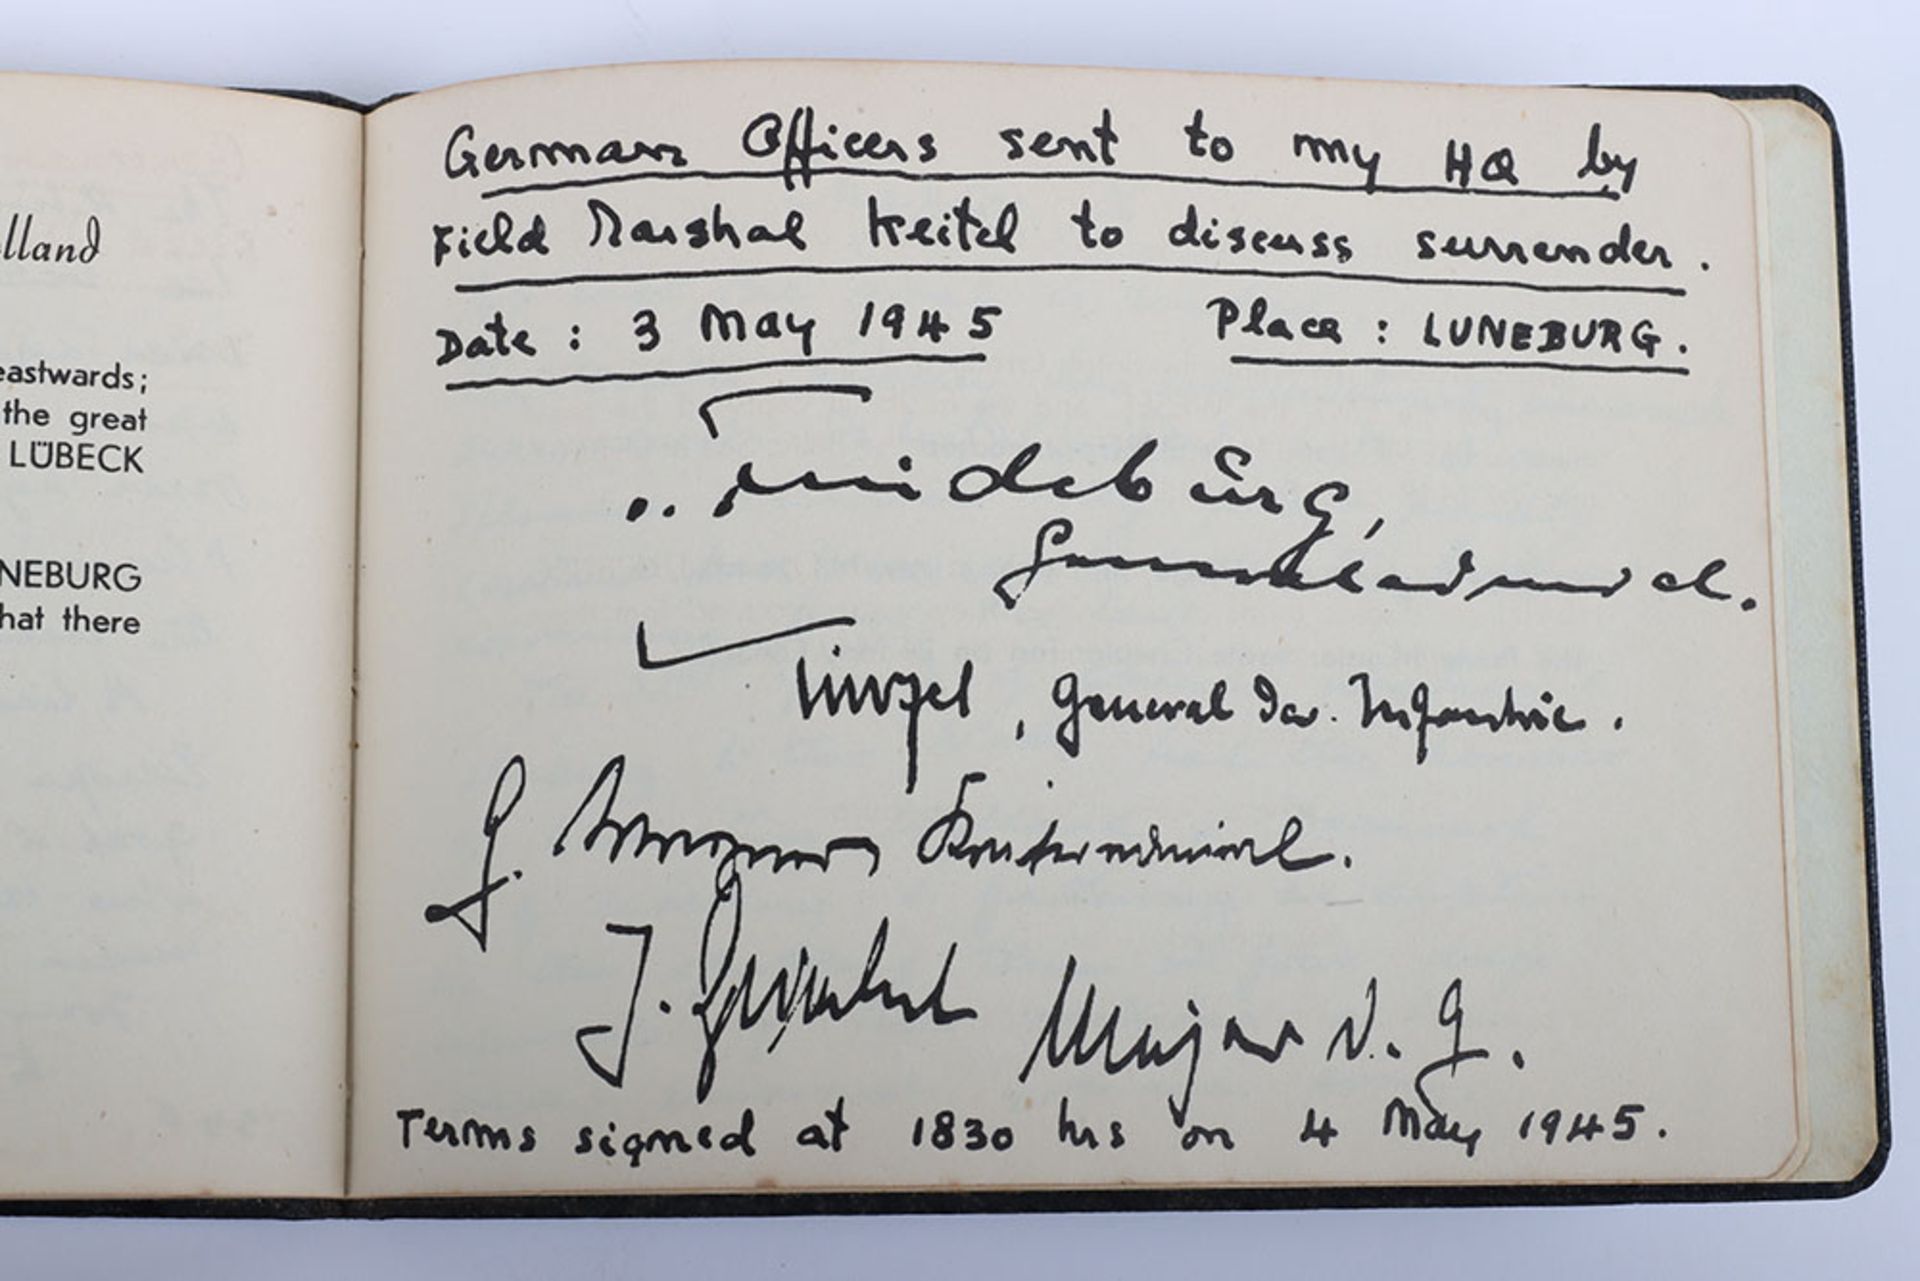 lland
eastwards;
the great
LÜBECK
NEBURG
hat there
German Officers sent to my HQ by
Field Marshal Keitel to discuss surrender.
Date: 3 May 1945 Place: LUNEBURG.
Generaladmiral.
Kinzel, General der Infantrie.
G. Wagner Konteradmiral.
J. Friedel Major i. G.
Terms signed at 1830 hrs on 4 May 1945.